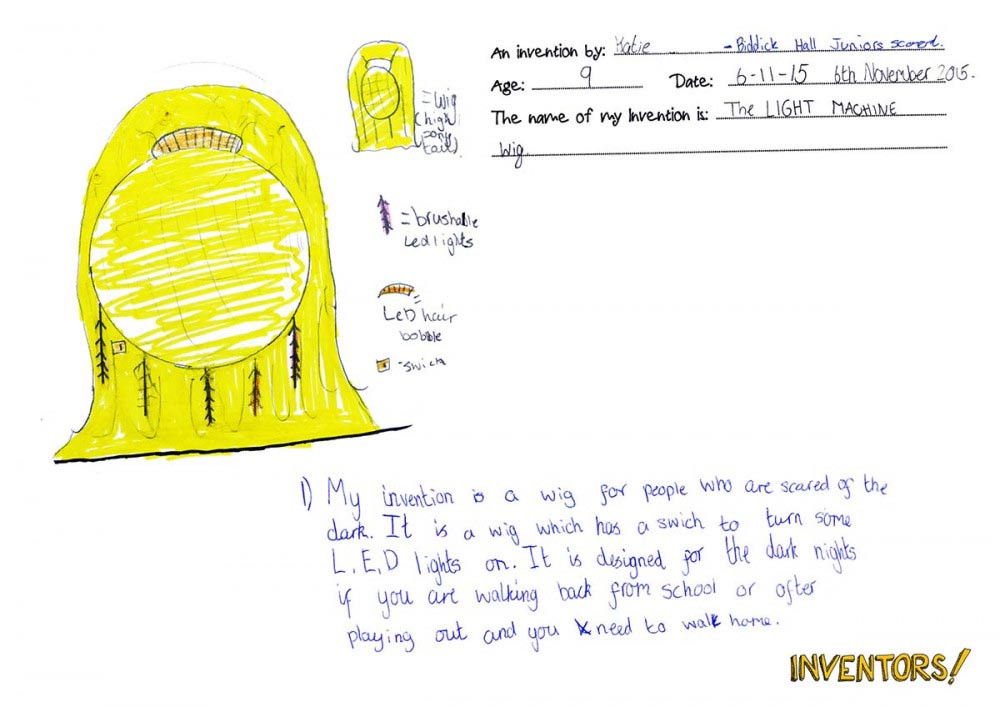 An invention by: Katie - Biddick Hall Juniors
Age: 9 Date: 6-11-15 6th November 2015.
The name of my invention is: The LIGHT MACHINE
Wig
= Wig
(high
pony
tail).
= brushable
Led lights
LeD hair
bobble
-swich
1) My invention is a wig for people who are scared of the
dark. It is a wig which has a swich to turn some
L.E.D lights on. It is designed for the dark nights
if you are walking back from school or after
playing out and you need to walk home.
INVENTORS!